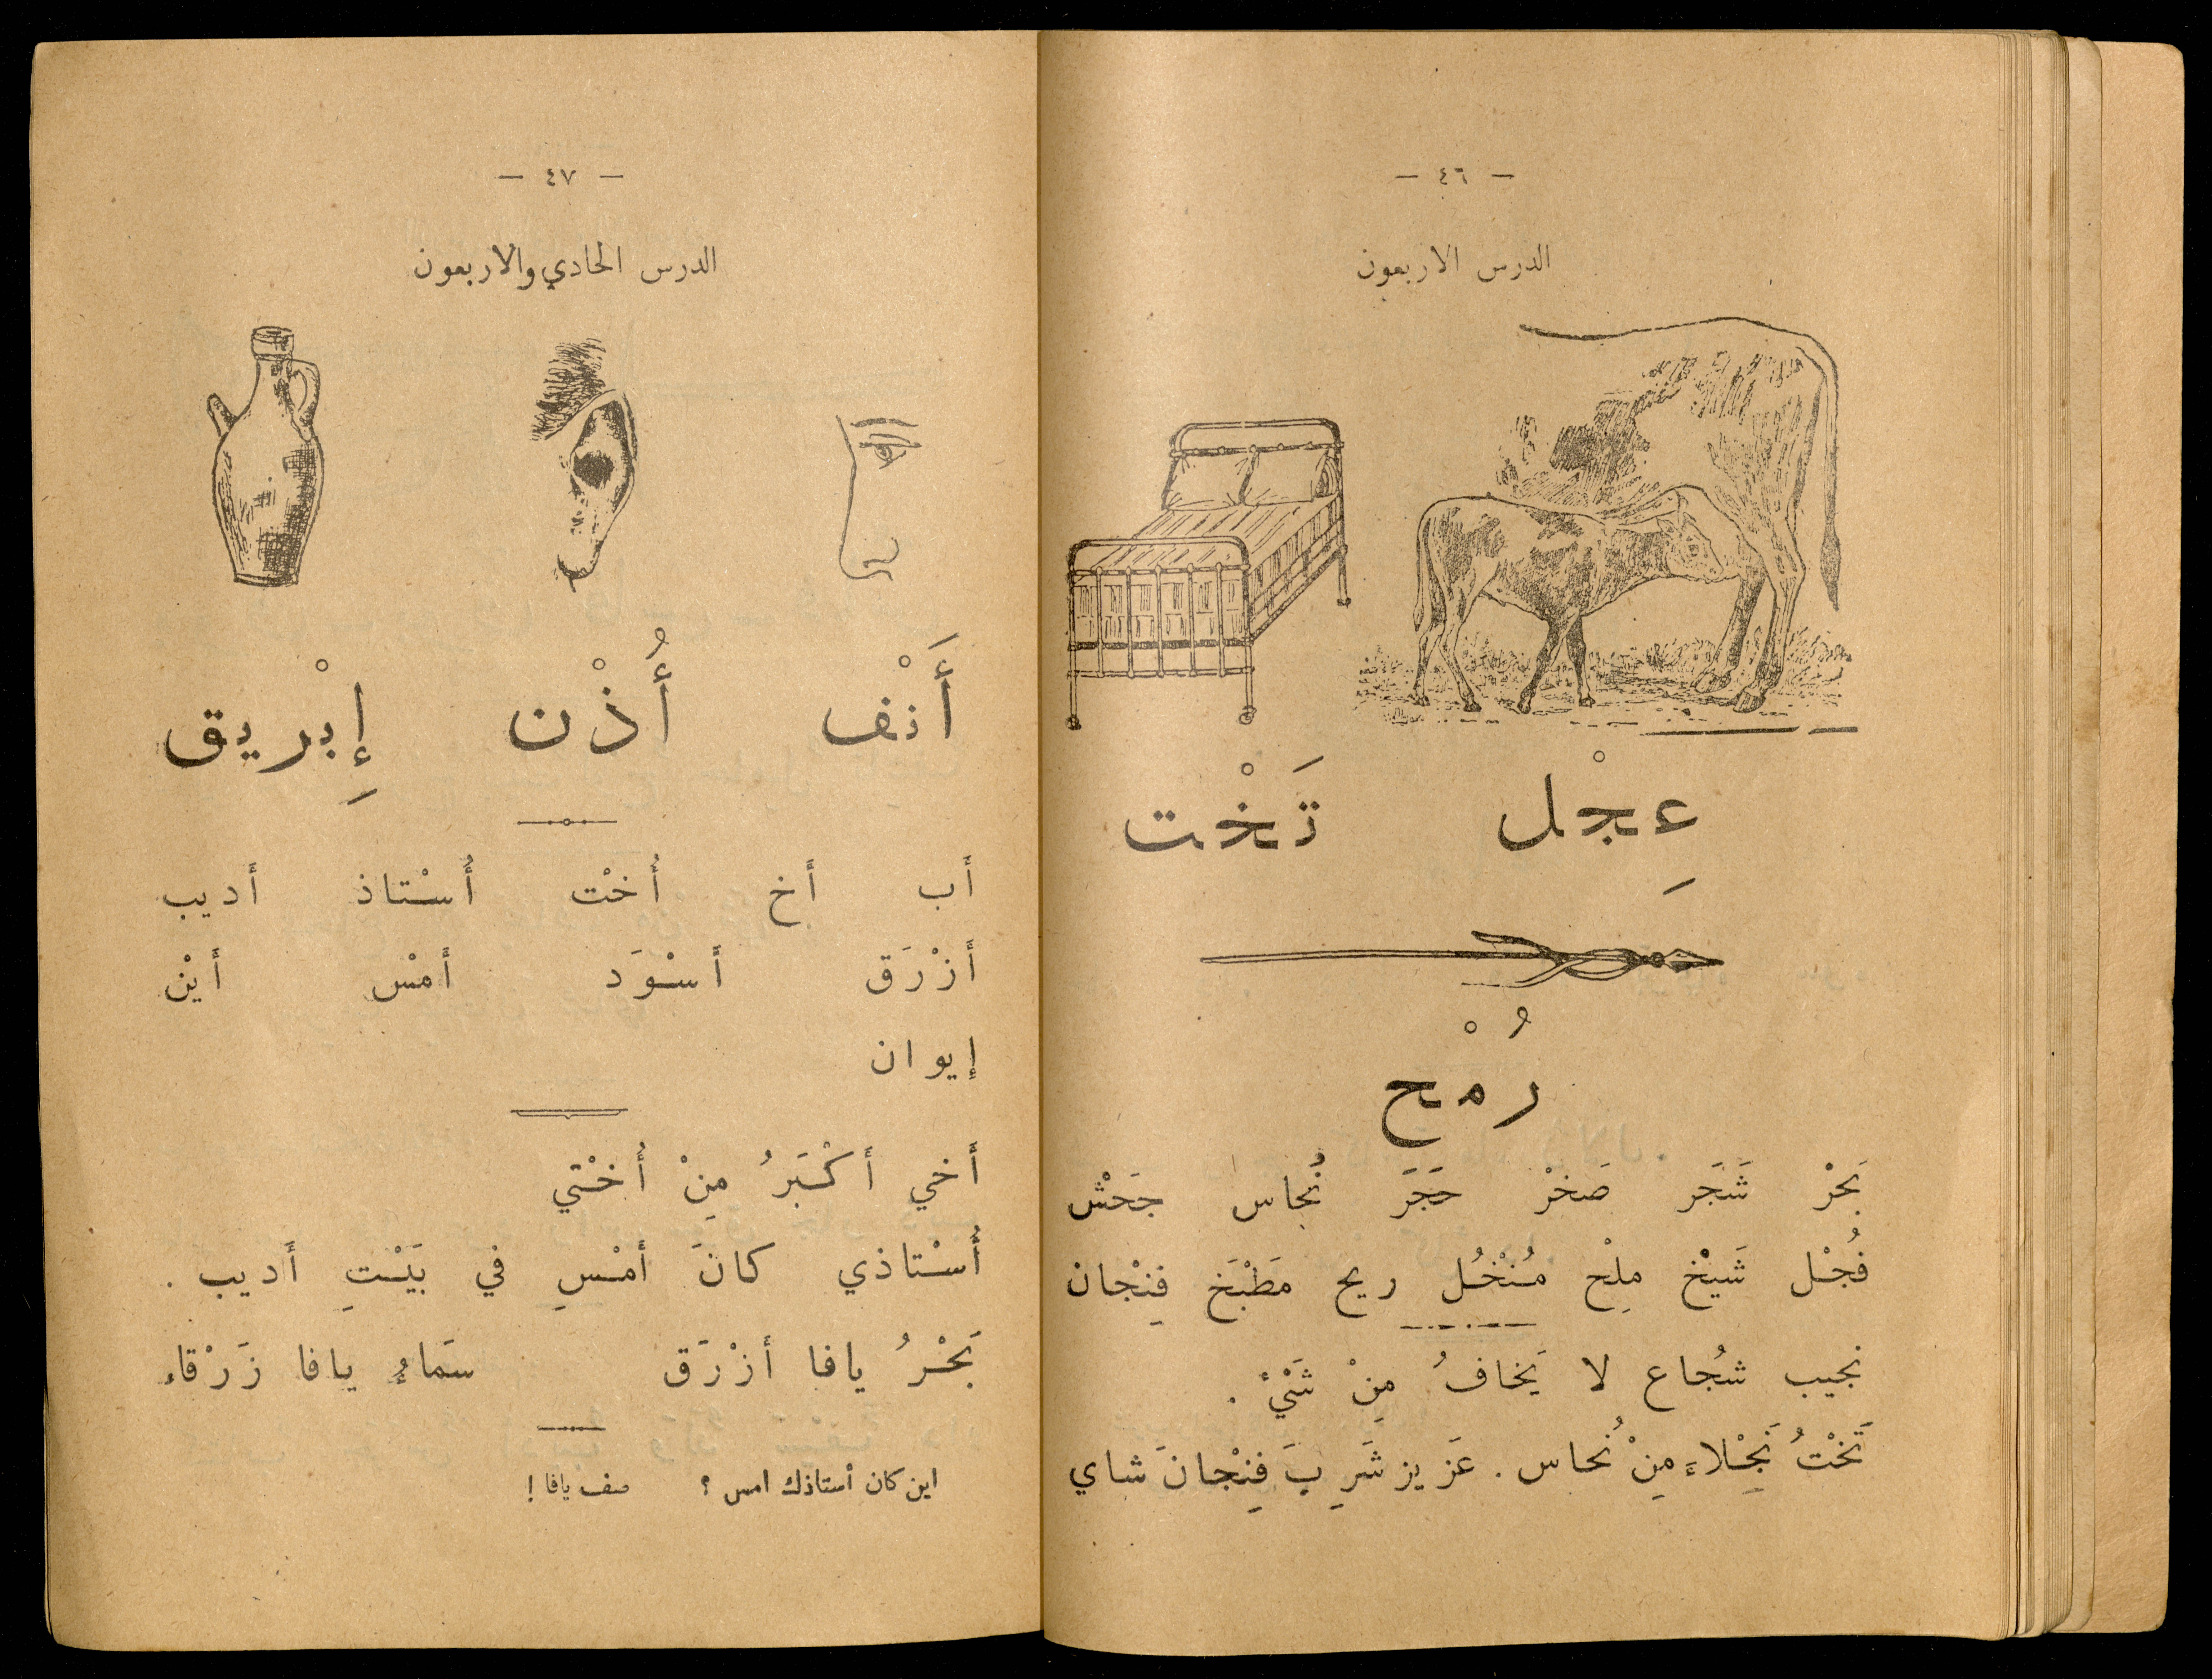 — ٤٦ —
الدرس الاربعون
عِجْل تَخْت
رُمْح
بَحْر شَجَر صَخْر حَجَر نُحاس جَحْش
فُجْل شَيْخ مِلْح مُنْخُل ريح مَطْبَخ فِنْجان
نجيب شُجاع لا يَخافُ مِنْ شَيْءٍ .
تَخْتُ نَجْلاءَ مِنْ نُحاس . عَزيز شَرِبَ فِنْجانَ شاي
— ٤٧ —
الدرس الحادي والاربعون
أَنْف أُذْن إِبْريق
أَب أَخ أُخْت أُسْتاذ أَديب
أَزْرَق أَسْوَد أَمْس أَيْن
إيوان
أَخي أَكْبَرُ مِنْ أُخْتي
أُسْتاذي كانَ أَمْسِ في بَيْتِ أَديب .
بَحْرُ يافا أَزْرَق سَماءُ يافا زَرْقاء
اين كان أستاذك امس ؟ صف يافا !